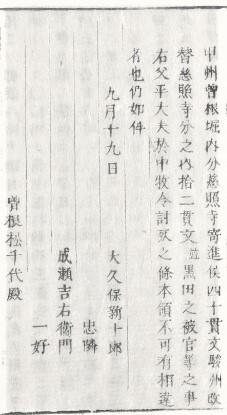 甲州曾根堀内分慈照寺寄進侯四十貫文駿州改
替慈照寺分之内拾二貫文並黒田之被官等之事
右父平大夫於中牧令討死之條本領不可有相違
者也仍如件
九月十九日
大久保新十郎
忠隣
成瀬吉右衞門
一好
曾根松千代殿